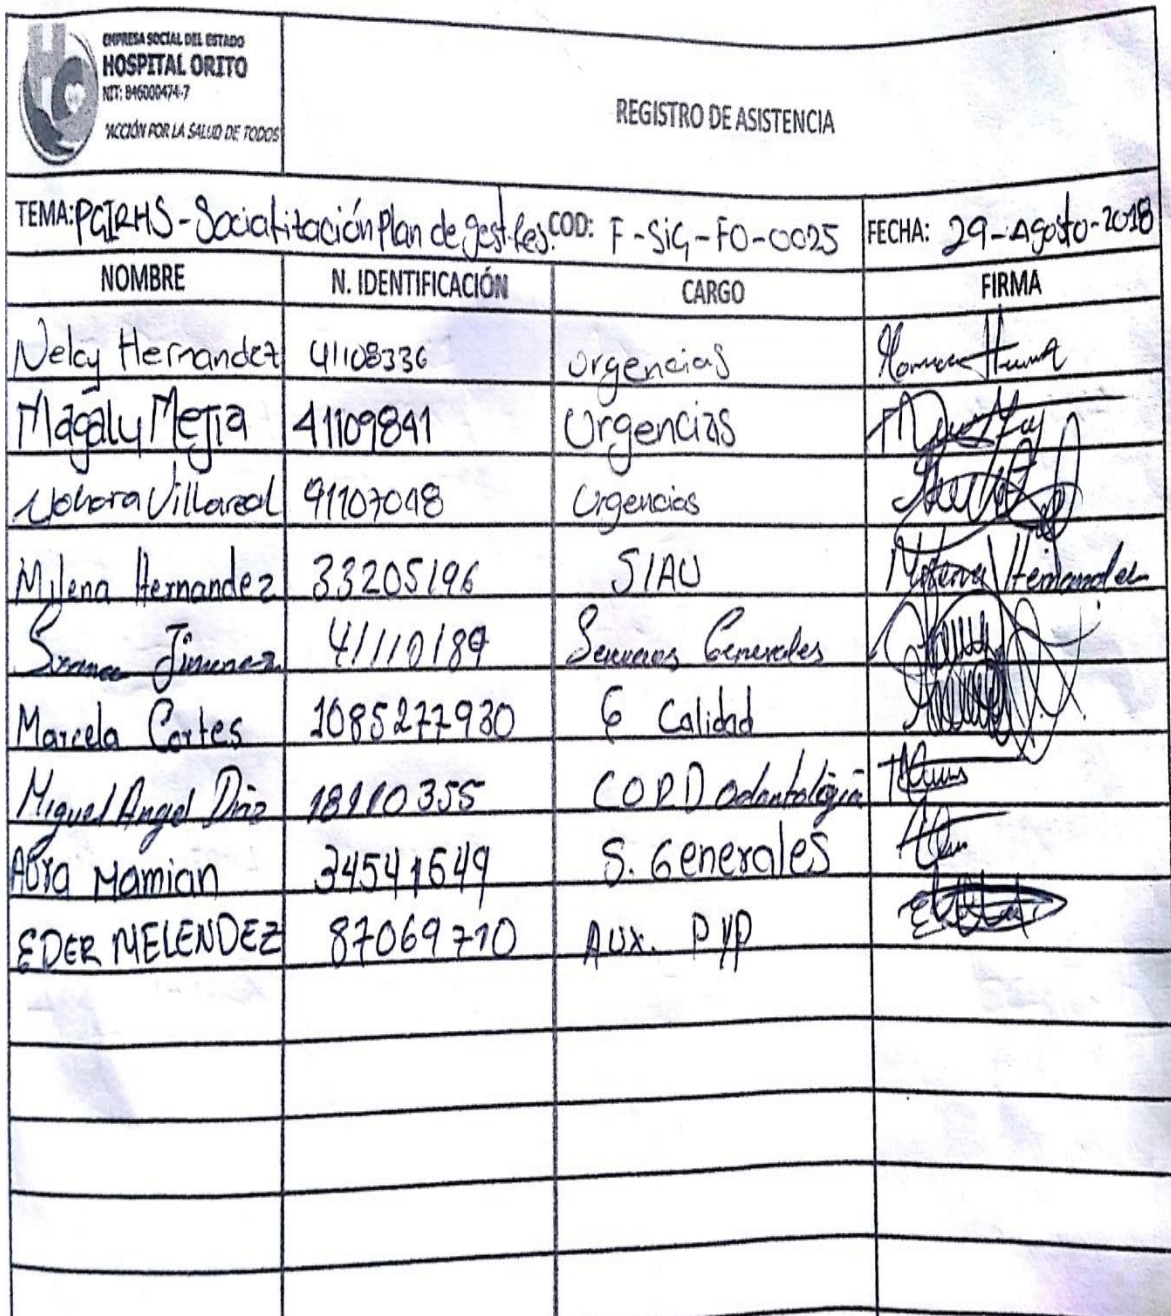 EMPRESA SOCIAL DEL ESTADO
HOSPITAL ORITO
NIT: 846000474-7
"ACCIÓN POR LA SALUD DE TODOS
REGISTRO DE ASISTENCIA
TEMA: PGIRHS - Socialitación Plan de gest. Res. COD: F-SiG-FO-0025 FECHA: 29-Agosto-2018
NOMBRE N. IDENTIFICACIÓN CARGO FIRMA
Nelcy Hernandez 41108336 Urgencias
Magaly Mejia 41109841 Urgencias
Villareal Urgencias
Milena Hernandez 33205196 SIAU Milena Hernandez
Jimenez 41110189 Servicios Generales
Marcela Cortes 1085277930 Calidad
Miguel Angel Diaz 18110355 Odontologia
Mamian 34541649 S. Generales
EDER MELENDEZ 87069710 Aux. PYP